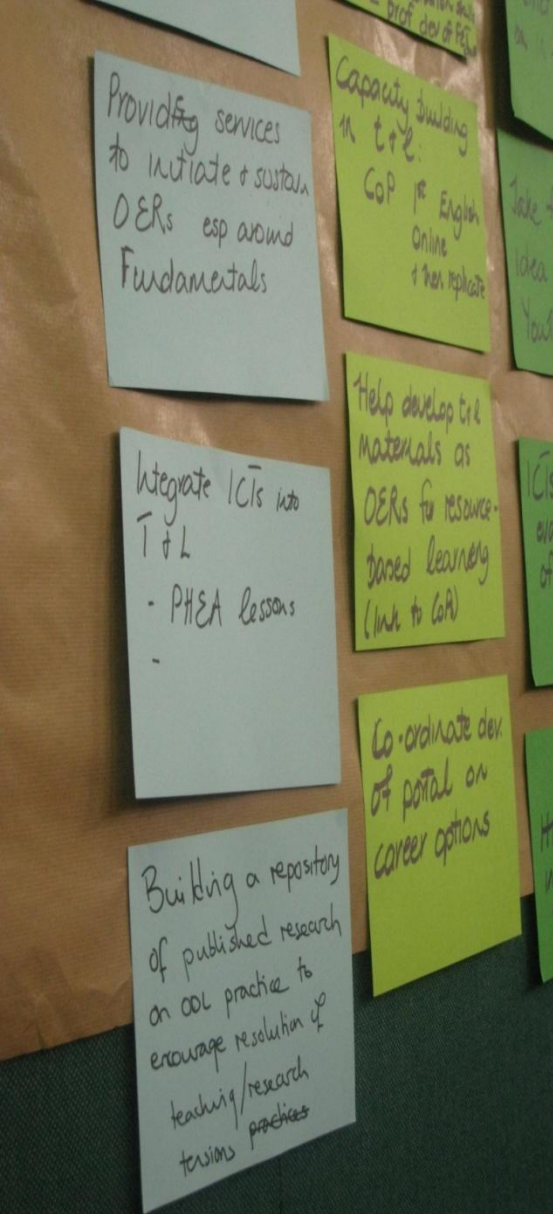 Providing services
to initiate & sustain
OERs esp around
Fundamentals
Integrate ICTs into
T & L
- PHEA lessons
-
Building a repository
of published research
on ODL practice to
encourage resolution of
teaching/research
tensions practices
prof dev of
Capacity building
in t & l:
CoP 1st English
Online
& then replicate
Help develop t & l
materials as
OERs for resource-
based learning
(link to CoP)
Co-ordinate dev.
of portal on
career options
Take
idea
ICTs
of